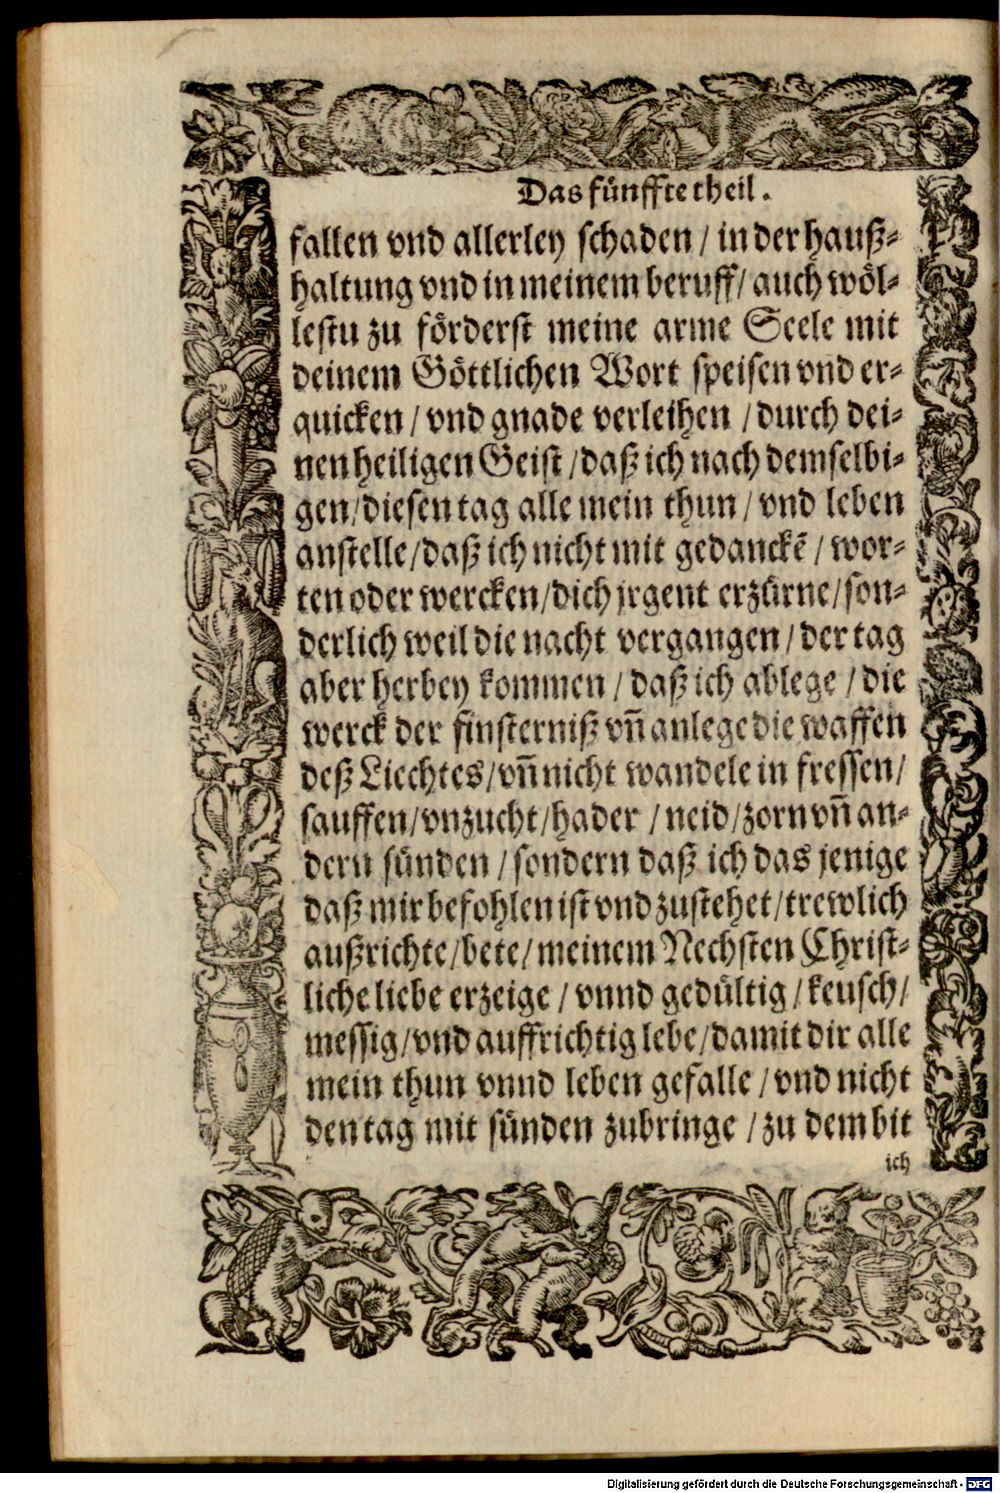 Das fünffte theil.
fallen vnd allerley schaden / in der hauß-
haltung vnd in meinem beruff/ auch wöl-
lestu zu förderst meine arme Seele mit
deinem Göttlichen Wort speisen vnd er-
quicken / vnd gnade verleihen / durch dei-
nen heiligen Geist / daß ich nach demselbi-
gen/diesen tag alle mein thun / vnd leben
anstelle/daß ich nicht mit gedanckē / wor-
ten oder wercken/dich jrgent erzürne/son-
derlich weil die nacht vergangen / der tag
aber herbey kommen / daß ich ablege / die
werck der finsterniß vn̄ anlege die waffen
deß Liechtes/vn̄ nicht wandele in fressen/
sauffen/vnzucht/hader / neid/zorn vn̄ an-
dern sünden / sondern daß ich das jenige
daß mir befohlen ist vnd zustehet/trewlich
außrichte/bete/meinem Nechsten Christ-
liche liebe erzeige / vnnd gedültig/keusch/
messig/vnd auffrichtig lebe/damit dir alle
mein thun vnnd leben gefalle / vnd nicht
den tag mit sünden zubringe / zu dem bit
ich
Digitalisierung gefördert durch die Deutsche Forschungsgemeinschaft - DFG